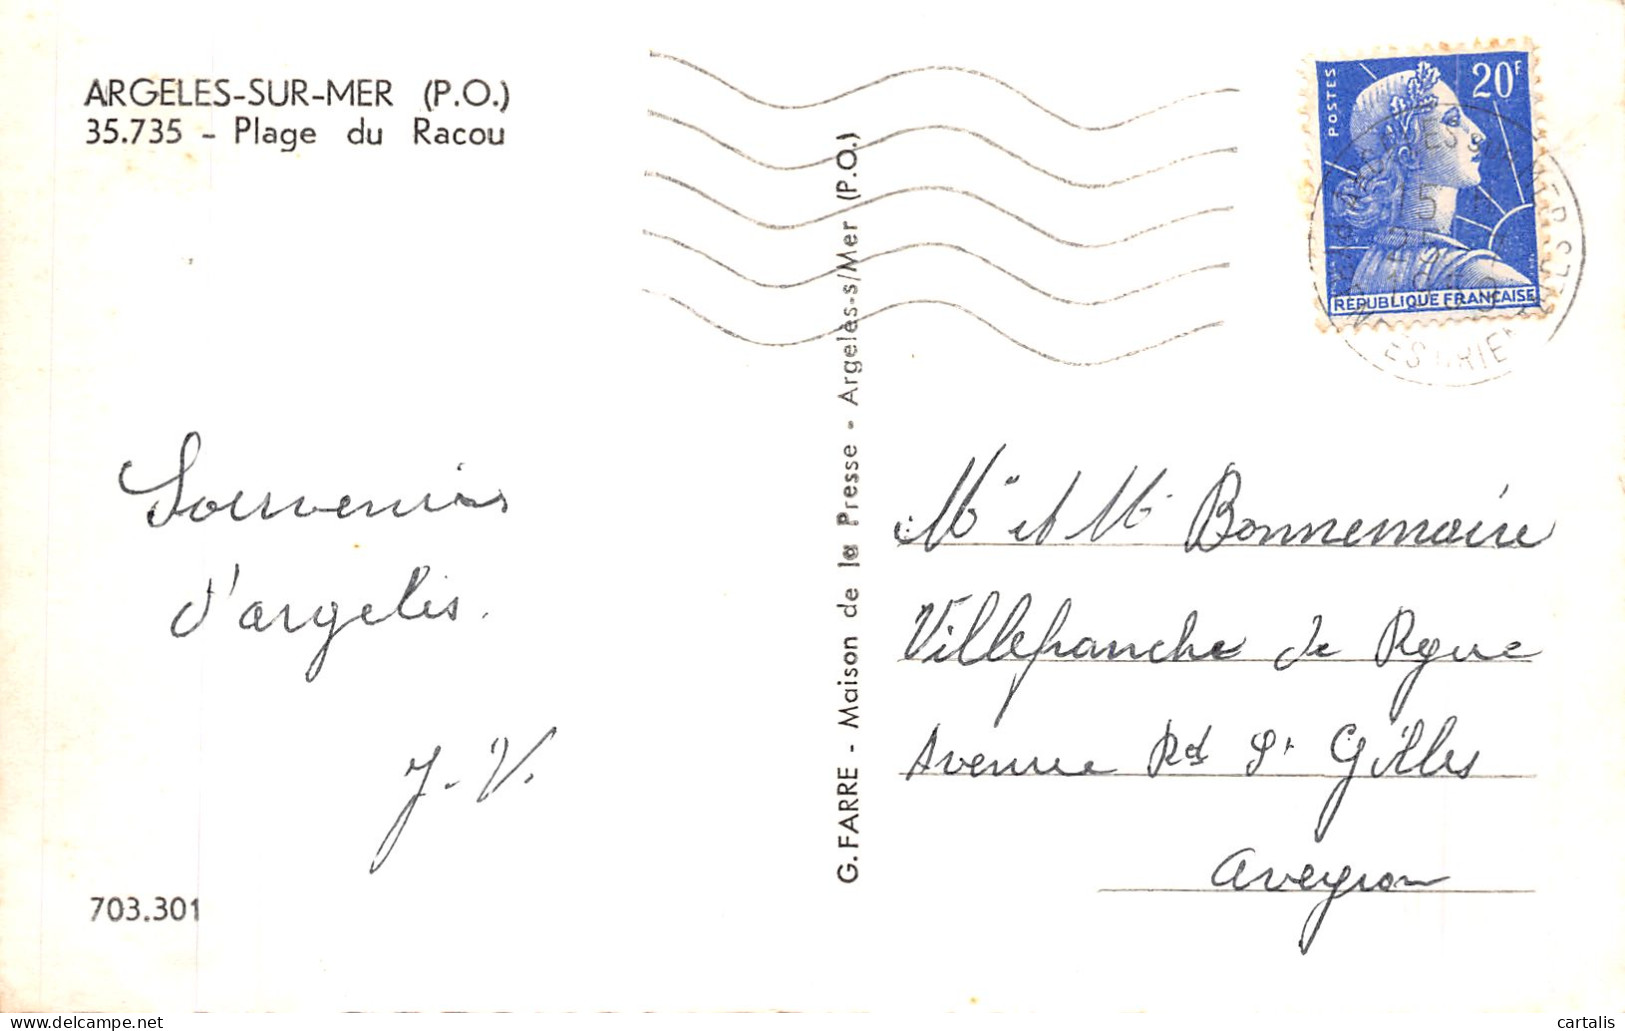 ARGELES-SUR-MER (P.O.)
35.735 - Plage du Racou
Souvenirs
d'argelès.
J-V.
703.301
G. FARRE - Maison de la Presse - Argelès-s/Mer (P.O.)
POSTES
20F
RÉPUBLIQUE FRANÇAISE
ARGELES SUR MER
15 H
Mr et Me Bonnemaire
Villefranche de Rgue
Avenue Rd St Gilles
Aveyron
www.delcampe.net
cartalis